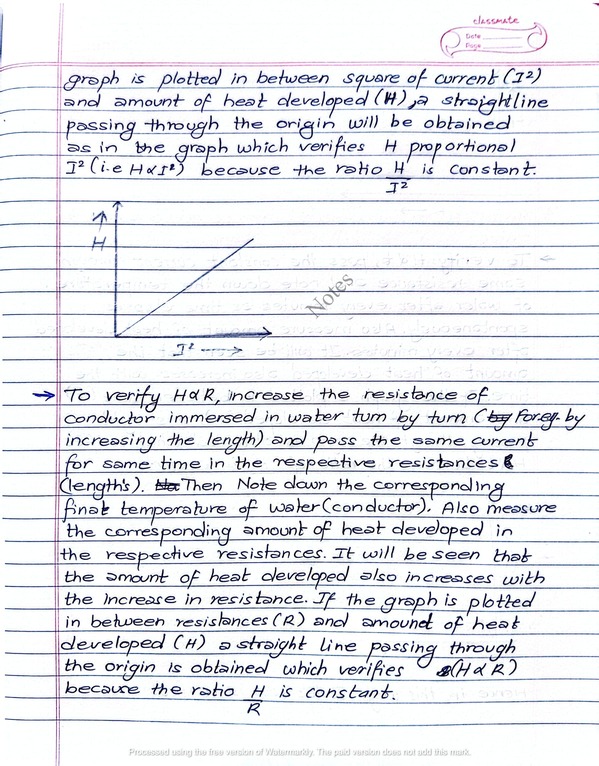 classmate
Date
Page
graph is plotted in between square of current (I²)
and amount of heat developed (H), a straightline
passing through the origin will be obtained
as in the graph which verifies H proportional
I² (i.e H α I²) because the ratio H/I² is constant.
H
Notes
I²
→ To verify H α R, increase the resistance of
conductor immersed in water turn by turn (by For eg. by
increasing the length) and pass the same current
for same time in the respective resistances
(length's). Then Note down the corresponding
final temperature of water (conductor). Also measure
the corresponding amount of heat developed in
the respective resistances. It will be seen that
the amount of heat developed also increases with
the increase in resistance. If the graph is plotted
in between resistances (R) and amount of heat
developed (H) a straight line passing through
the origin is obtained which verifies (H α R)
because the ratio H/R is constant.
Processed using the free version of Watermarkly. The paid version does not add this mark.